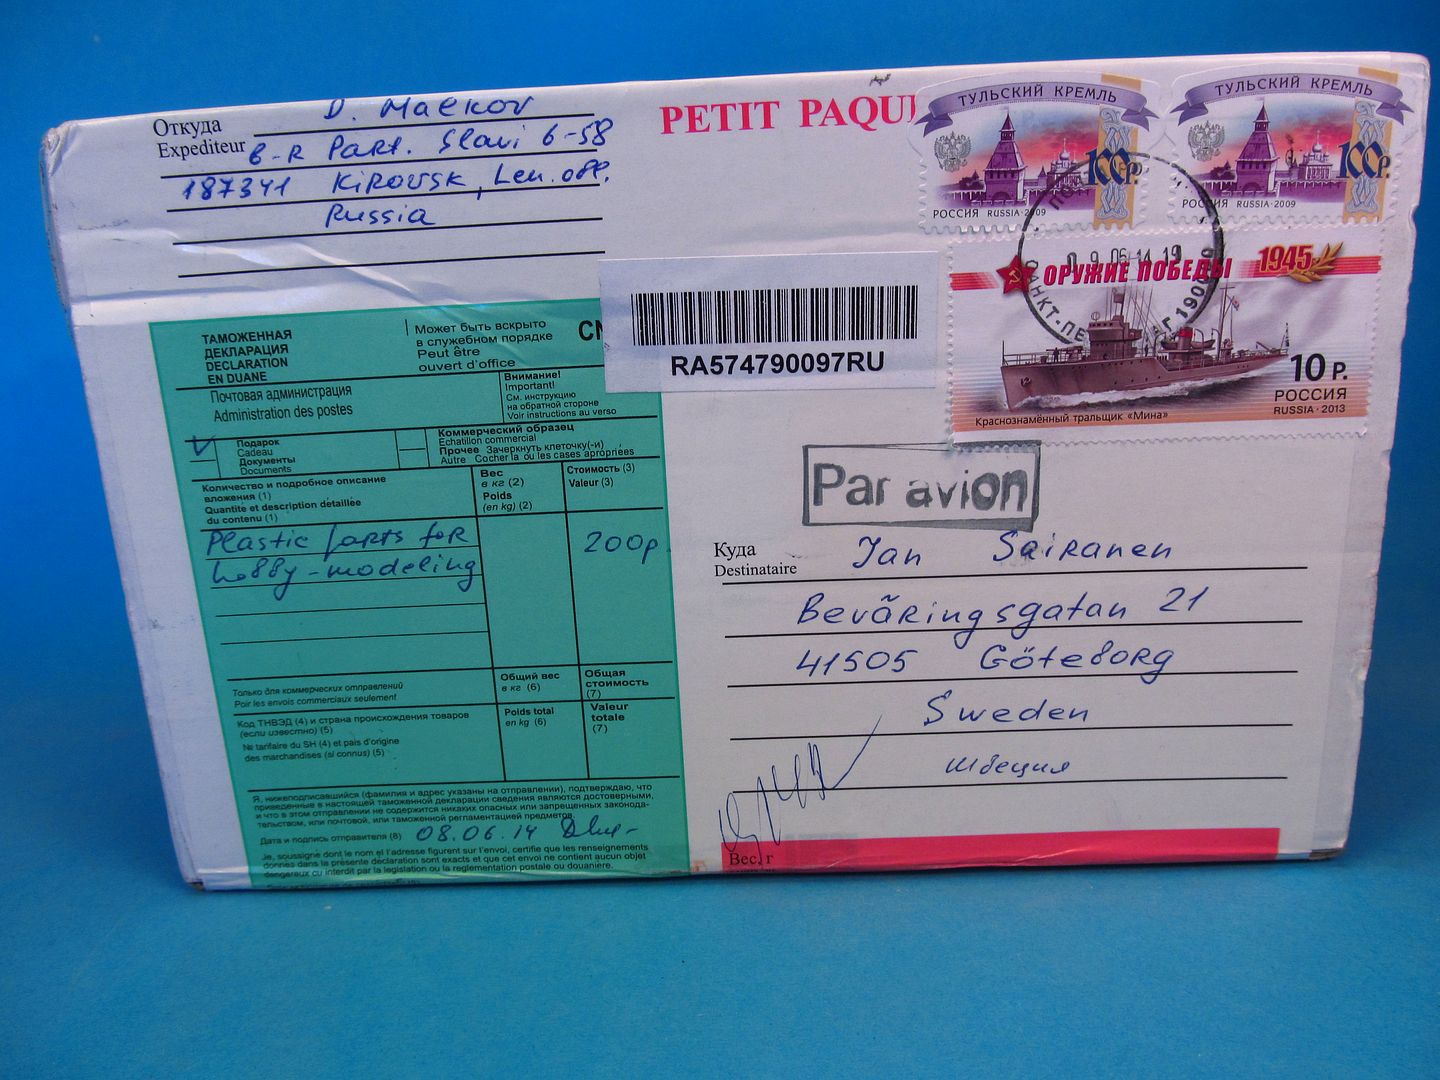 Откуда
Expediteur
D. Malkov
B-R Part. Slavi 6-58
187341 Kirovsk, Len. obl.
Russia
PETIT PAQU
ТУЛЬСКИЙ КРЕМЛЬ
100Р.
РОССИЯ RUSSIA·2009
ТУЛЬСКИЙ КРЕМЛЬ
100Р.
РОССИЯ RUSSIA·2009
ОРУЖИЕ ПОБЕДЫ 1945
09 06 14 19
190000
10 Р.
РОССИЯ
RUSSIA·2013
Краснознамённый тральщик «Мина»
RA574790097RU
ТАМОЖЕННАЯ
ДЕКЛАРАЦИЯ
DECLARATION
EN DUANE
Может быть вскрыто
в служебном порядке
Peut être
ouvert d'office
CN
Почтовая администрация
Administration des postes
Внимание!
Important!
См. инструкцию
на обратной стороне
Voir instructions au verso
Подарок
Cadeau
Документы
Documents
Коммерческий образец
Echatillon commercial
Прочее Зачеркнуть клеточку(-и)
Autre Cocher la ou les cases apropriées
Количество и подробное описание
вложения (1)
Quantite et description détaillée
du contenu (1)
Вес
в кг (2)
Poids
(en kg) (2)
Стоимость (3)
Valeur (3)
Plastic parts for
hobby-modeling
200р
Только для коммерческих отправлений
Poir les envois commerciaux seulement
Общий вес
в кг (6)
Общая
стоимость
(7)
Код ТНВЭД (4) и страна происхождения товаров
(если известно) (5)
№ tarifaire du SH (4) et pais d'origine
des marchandises (si connus) (5)
Poids total
en kg (6)
Valeur
totale
(7)
Я, нижеподписавшийся (фамилия и адрес указаны на отправлении), подтверждаю, что
приведенные в настоящей таможенной декларации сведения являются достоверными,
и что в этом отправлении не содержится никаких опасных или запрещенных законода-
тельством, или почтовой, или таможенной регламентацией предметов
Дата и подпись отправителя (8) 08.06.14
Je, soussigne dont le nom et l'adresse figurent sur l'envoi, certifie que les renseignements
donnés dans la présente déclaration sont exacts et que cet envoi ne contient aucun objet
dangereux cu interdit par la legislation ou la reglementation postale ou douaniere.
Par avion
Куда
Destinataire
Jan Sairanen
Beväringsgatan 21
41505 Göteborg
Sweden
Швеция
Вес, г